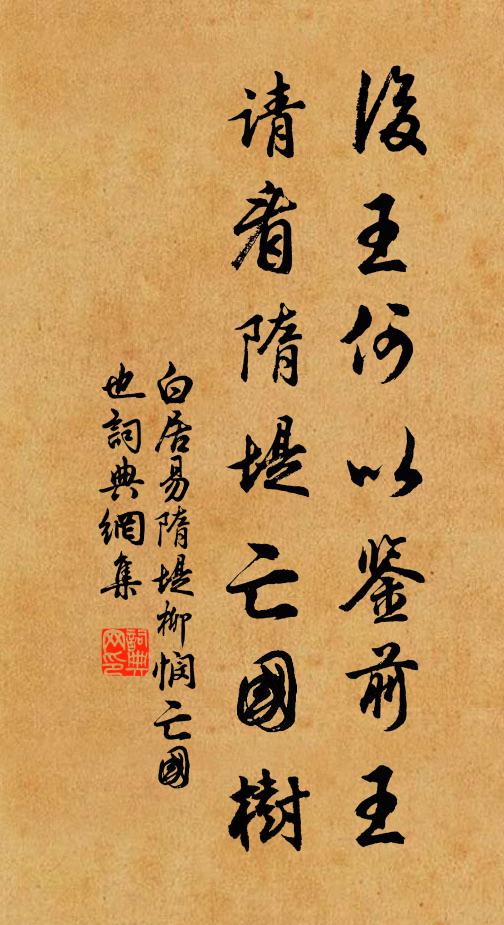 後王何以鉴前王
请看隋堤亡國樹
白居易隋堤柳悯亡國
也詞典網集
詞典网印